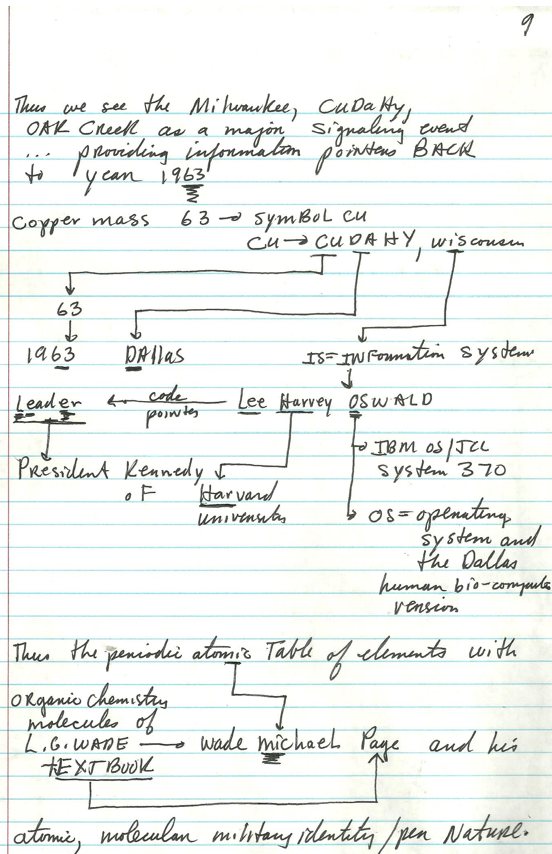 9
Thus we see the Milwaukee, CuDaHy,
OAK Creek as a major signaling event
... providing information pointers BACK
to year 1963
Copper mass 63 → SYMBOL CU
CU → CUDAHY, wisconsin
63
1963 DAllas IS=INFormation system
Leader ← code pointer Lee Harvey OSWALD
IBM OS/JCL
President Kennedy system 370
of Harvard
university
OS = operating
system and
the Dallas
human bio-computer
version
Thus the periodic atomic Table of elements with
organic chemistry
molecules of
L.G. WADE → wade michael Page and his
tEXTBOOK
atomic, molecular military identity/pen Nature.